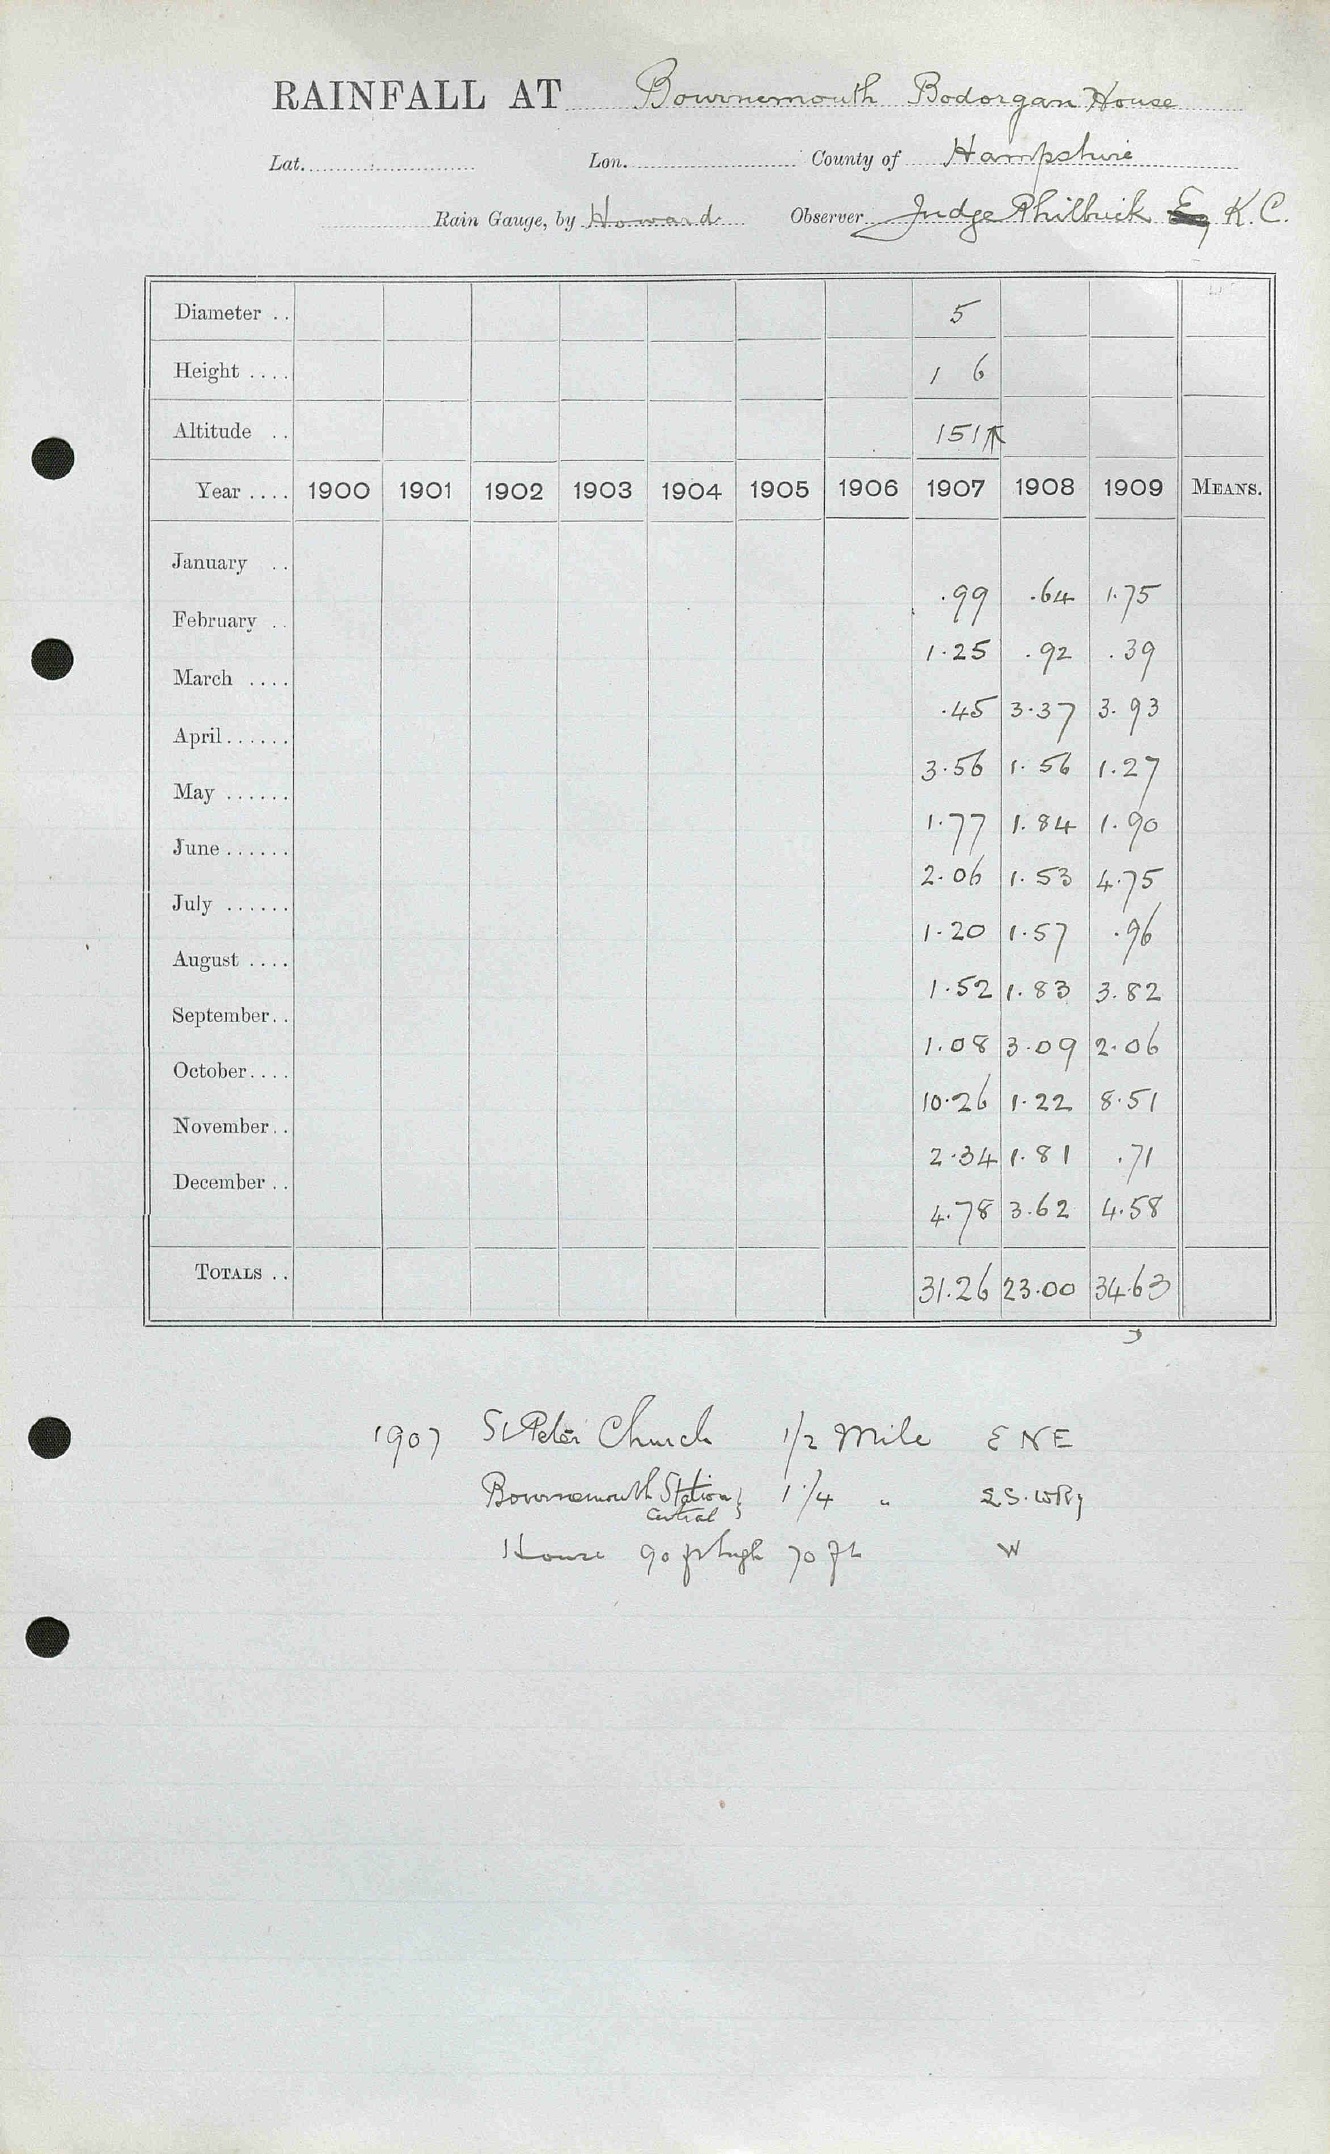 RAINFALL AT Bournemouth Bodorgan House
Lat. Lon. County of Hampshire
Rain Gauge, by Howard Observer Judge Philbrick K.C.
Diameter .. 5
Height .... 1 6
Altitude .. 151
Year .... 1900 1901 1902 1903 1904 1905 1906 1907 1908 1909 MEANS.
January .. .99 .64 1.75
February .. 1.25 .92 .39
March .... .45 3.37 3.93
April...... 3.56 1.56 1.27
May ...... 1.77 1.84 1.90
June ...... 2.06 1.53 4.75
July ...... 1.20 1.57 .96
August .... 1.52 1.83 3.82
September.. 1.08 3.09 2.06
October.... 10.26 1.22 8.51
November.. 2.34 1.81 .71
December .. 4.78 3.62 4.58
TOTALS .. 31.26 23.00 34.63
1907 St Peter Church 1/2 Mile ENE
Bournemouth Station 1 1/4 "
Central
House 90 ft high 70 ft W